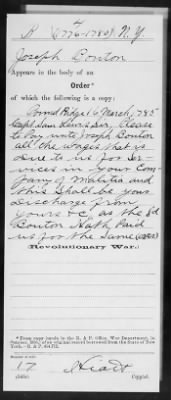 R (1776-1780) N.Y.
Joseph Bouton
Appears in the body of an
Order*
of which the following is a copy:
Pound Ridge 16 March 1785
Capt. Sam Lewis Sir, Please
to Pay unto Joseph Bouton
all the wages that is
due to us for Ser-
vices in your Com-
pany of Malitia and
this shall be your
discharge from
yours &c, as the sd
Bouton Hath Paid
us for the same
Revolutionary War.
*From copy (made in the R. & P. Office, War Department, in
of an original record borrowed from the State of New
York.—R. & P.
Number of roll:
17
Hiatt
Copyist.